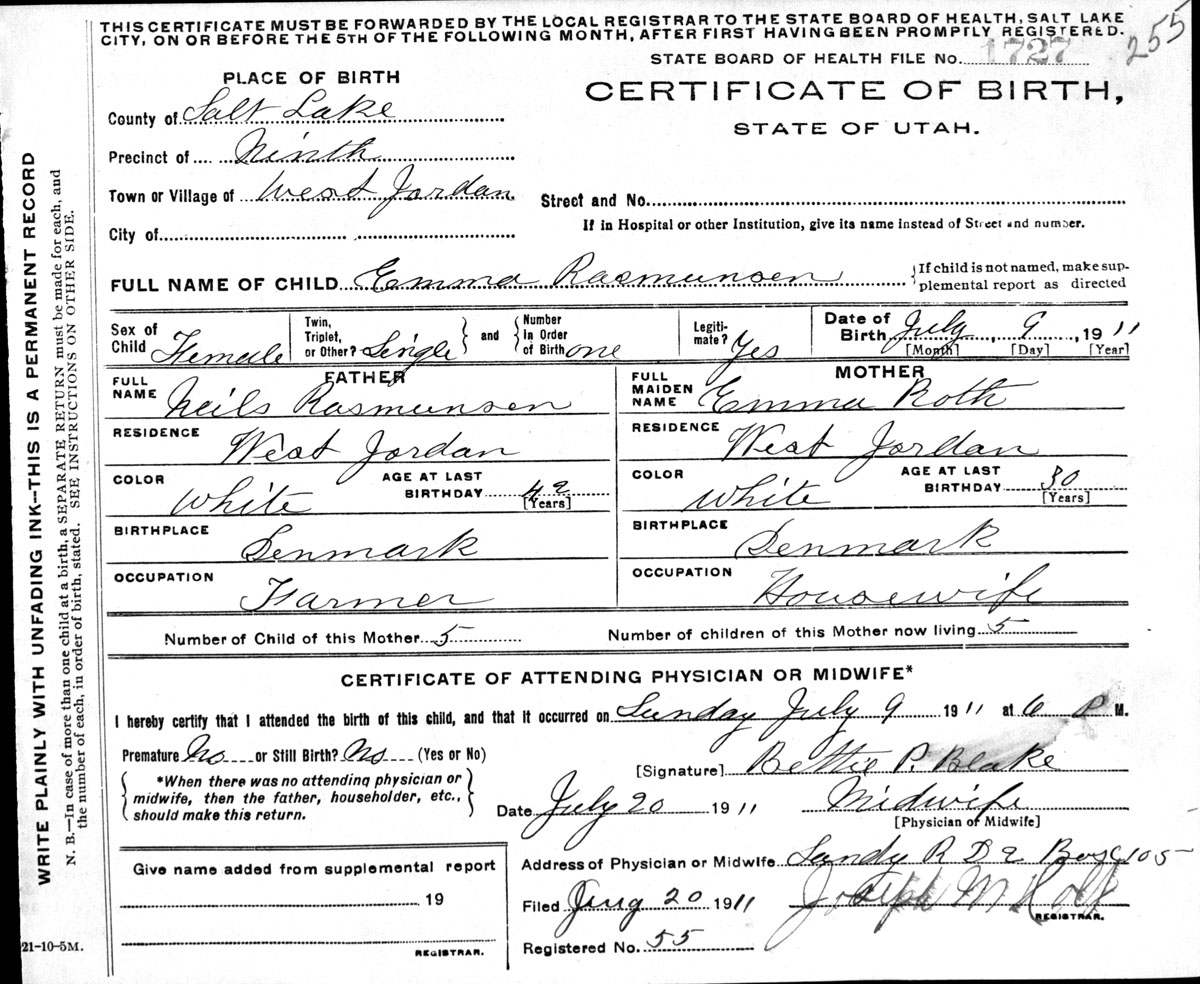 THIS CERTIFICATE MUST BE FORWARDED BY THE LOCAL REGISTRAR TO THE STATE BOARD OF HEALTH, SALT LAKE
CITY, ON OR BEFORE THE 5TH OF THE FOLLOWING MONTH, AFTER FIRST HAVING BEEN PROMPTLY REGISTERED.
255
STATE BOARD OF HEALTH FILE No. 1727
PLACE OF BIRTH
CERTIFICATE OF BIRTH,
STATE OF UTAH.
County of Salt Lake
Precinct of Ninth
Town or Village of West Jordan
Street and No.
City of
If in Hospital or other Institution, give its name instead of Street and number.
FULL NAME OF CHILD Emma Rasmunsen
If child is not named, make sup-
plemental report as directed
Sex of Child Female
Twin, Triplet, or Other? Single
and
Number In Order of Birth one
Legiti-mate? Yes
Date of Birth July, 9, 1911
[Month] [Day] [Year]
FATHER
FULL NAME Neils Rasmunsen
RESIDENCE West Jordan
COLOR White
AGE AT LAST BIRTHDAY 42
[Years]
BIRTHPLACE Denmark
OCCUPATION Farmer
MOTHER
FULL MAIDEN NAME Emma Roth
RESIDENCE West Jordan
COLOR White
AGE AT LAST BIRTHDAY 30
[Years]
BIRTHPLACE Denmark
OCCUPATION Housewife
Number of Child of this Mother 5
Number of children of this Mother now living 5
CERTIFICATE OF ATTENDING PHYSICIAN OR MIDWIFE*
I hereby certify that I attended the birth of this child, and that it occurred on Sunday July 9 1911 at 6 P M.
Premature No or Still Birth? No (Yes or No)
[Signature] Bettie P. Blake
*When there was no attending physician or
midwife, then the father, householder, etc.,
should make this return.
Date July 20 1911
Midwife
[Physician or Midwife]
Address of Physician or Midwife Sandy R D 2 Box 105
Give name added from supplemental report
19
REGISTRAR.
Filed Aug 20 1911
Joseph M Holt
REGISTRAR.
Registered No. 55
21-10-5M.
WRITE PLAINLY WITH UNFADING INK—THIS IS A PERMANENT RECORD
N. B.—In case of more than one child at a birth, a SEPARATE RETURN must be made for each, and
the number of each, in order of birth, stated. SEE INSTRUCTIONS ON OTHER SIDE.